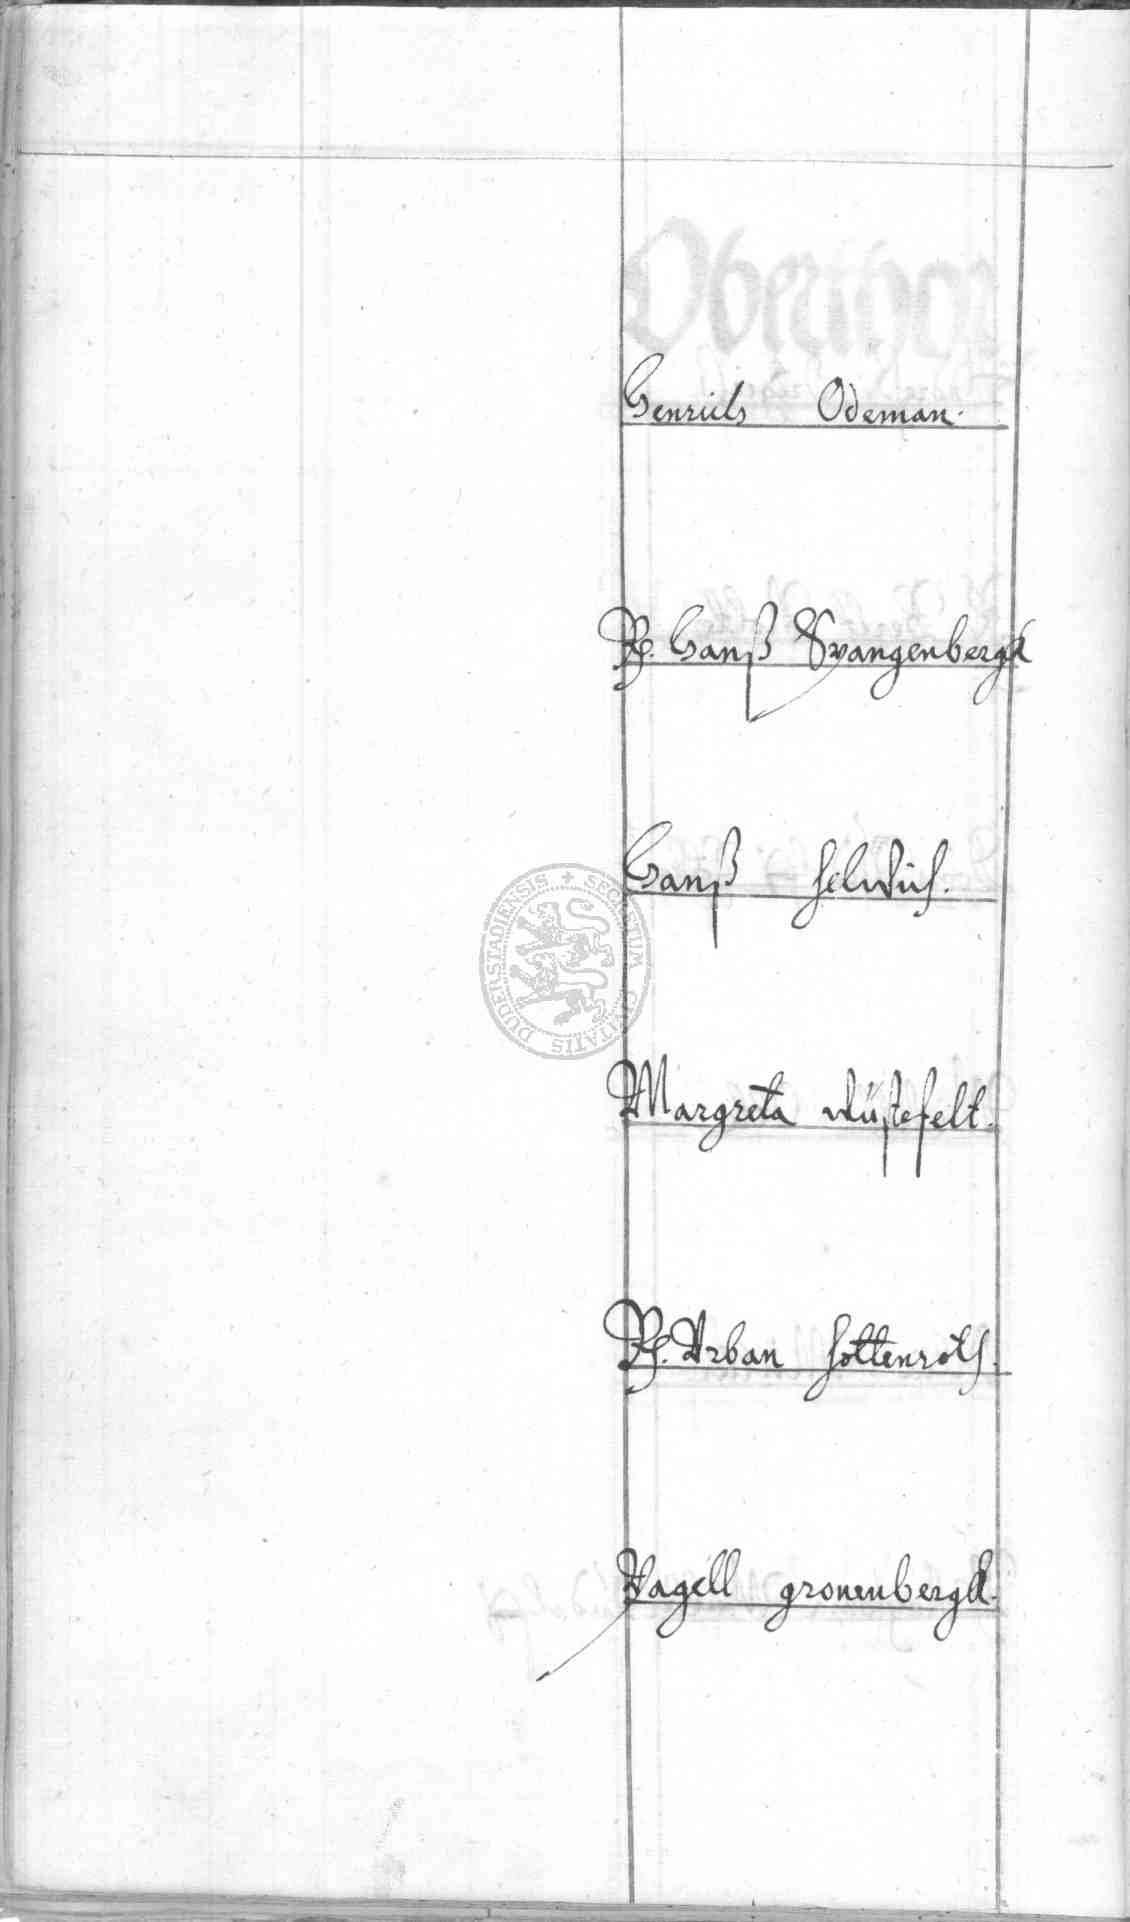 Henrich Odeman.
R. Hanß Spangenbergk
Hanß Helwich.
Margreta Wüstefelt.
R. Urban Hottenroth.
Pagell gronenbergk.
SECRETUM CIVITATIS DUDERSTADIENSIS